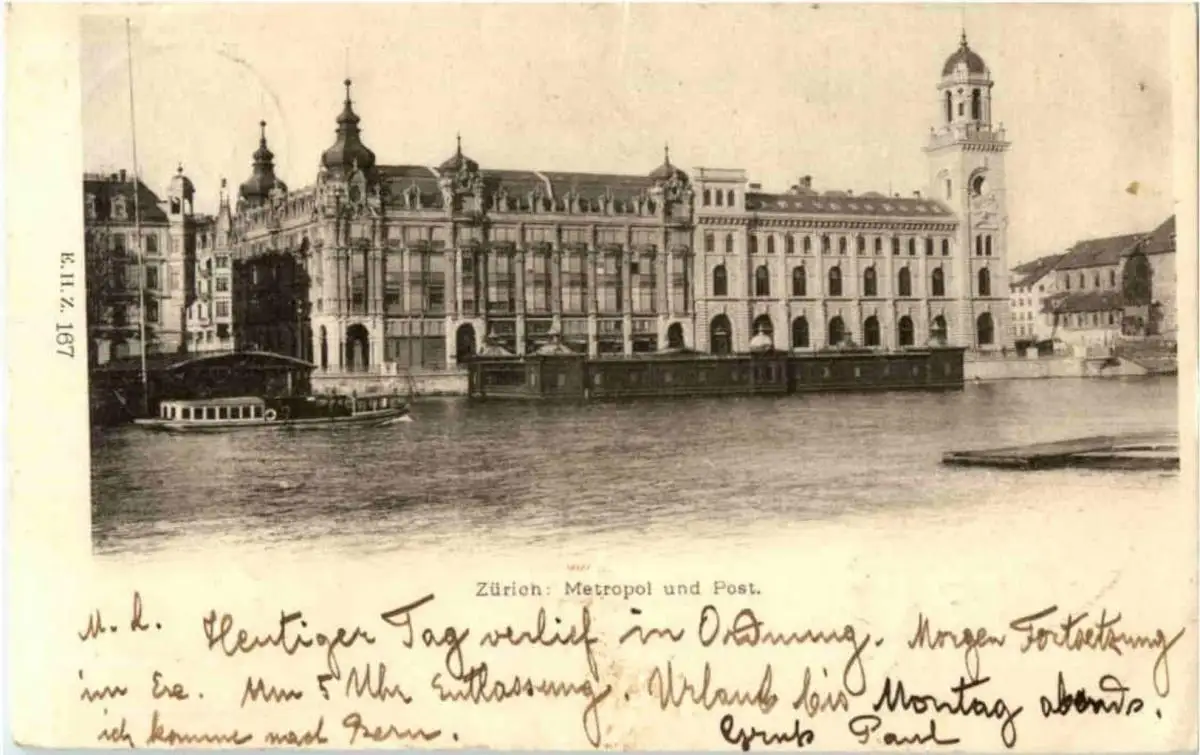 E. H. Z. 167
Zürich: Metropol und Post.
M. L. Heutiger Tag verlief in Ordnung. Morgen Fortsetzung
im Ex. Um 5 Uhr Entlassung. Urlaub bis Montag abends.
ich komme nach Bern. Gruß Paul